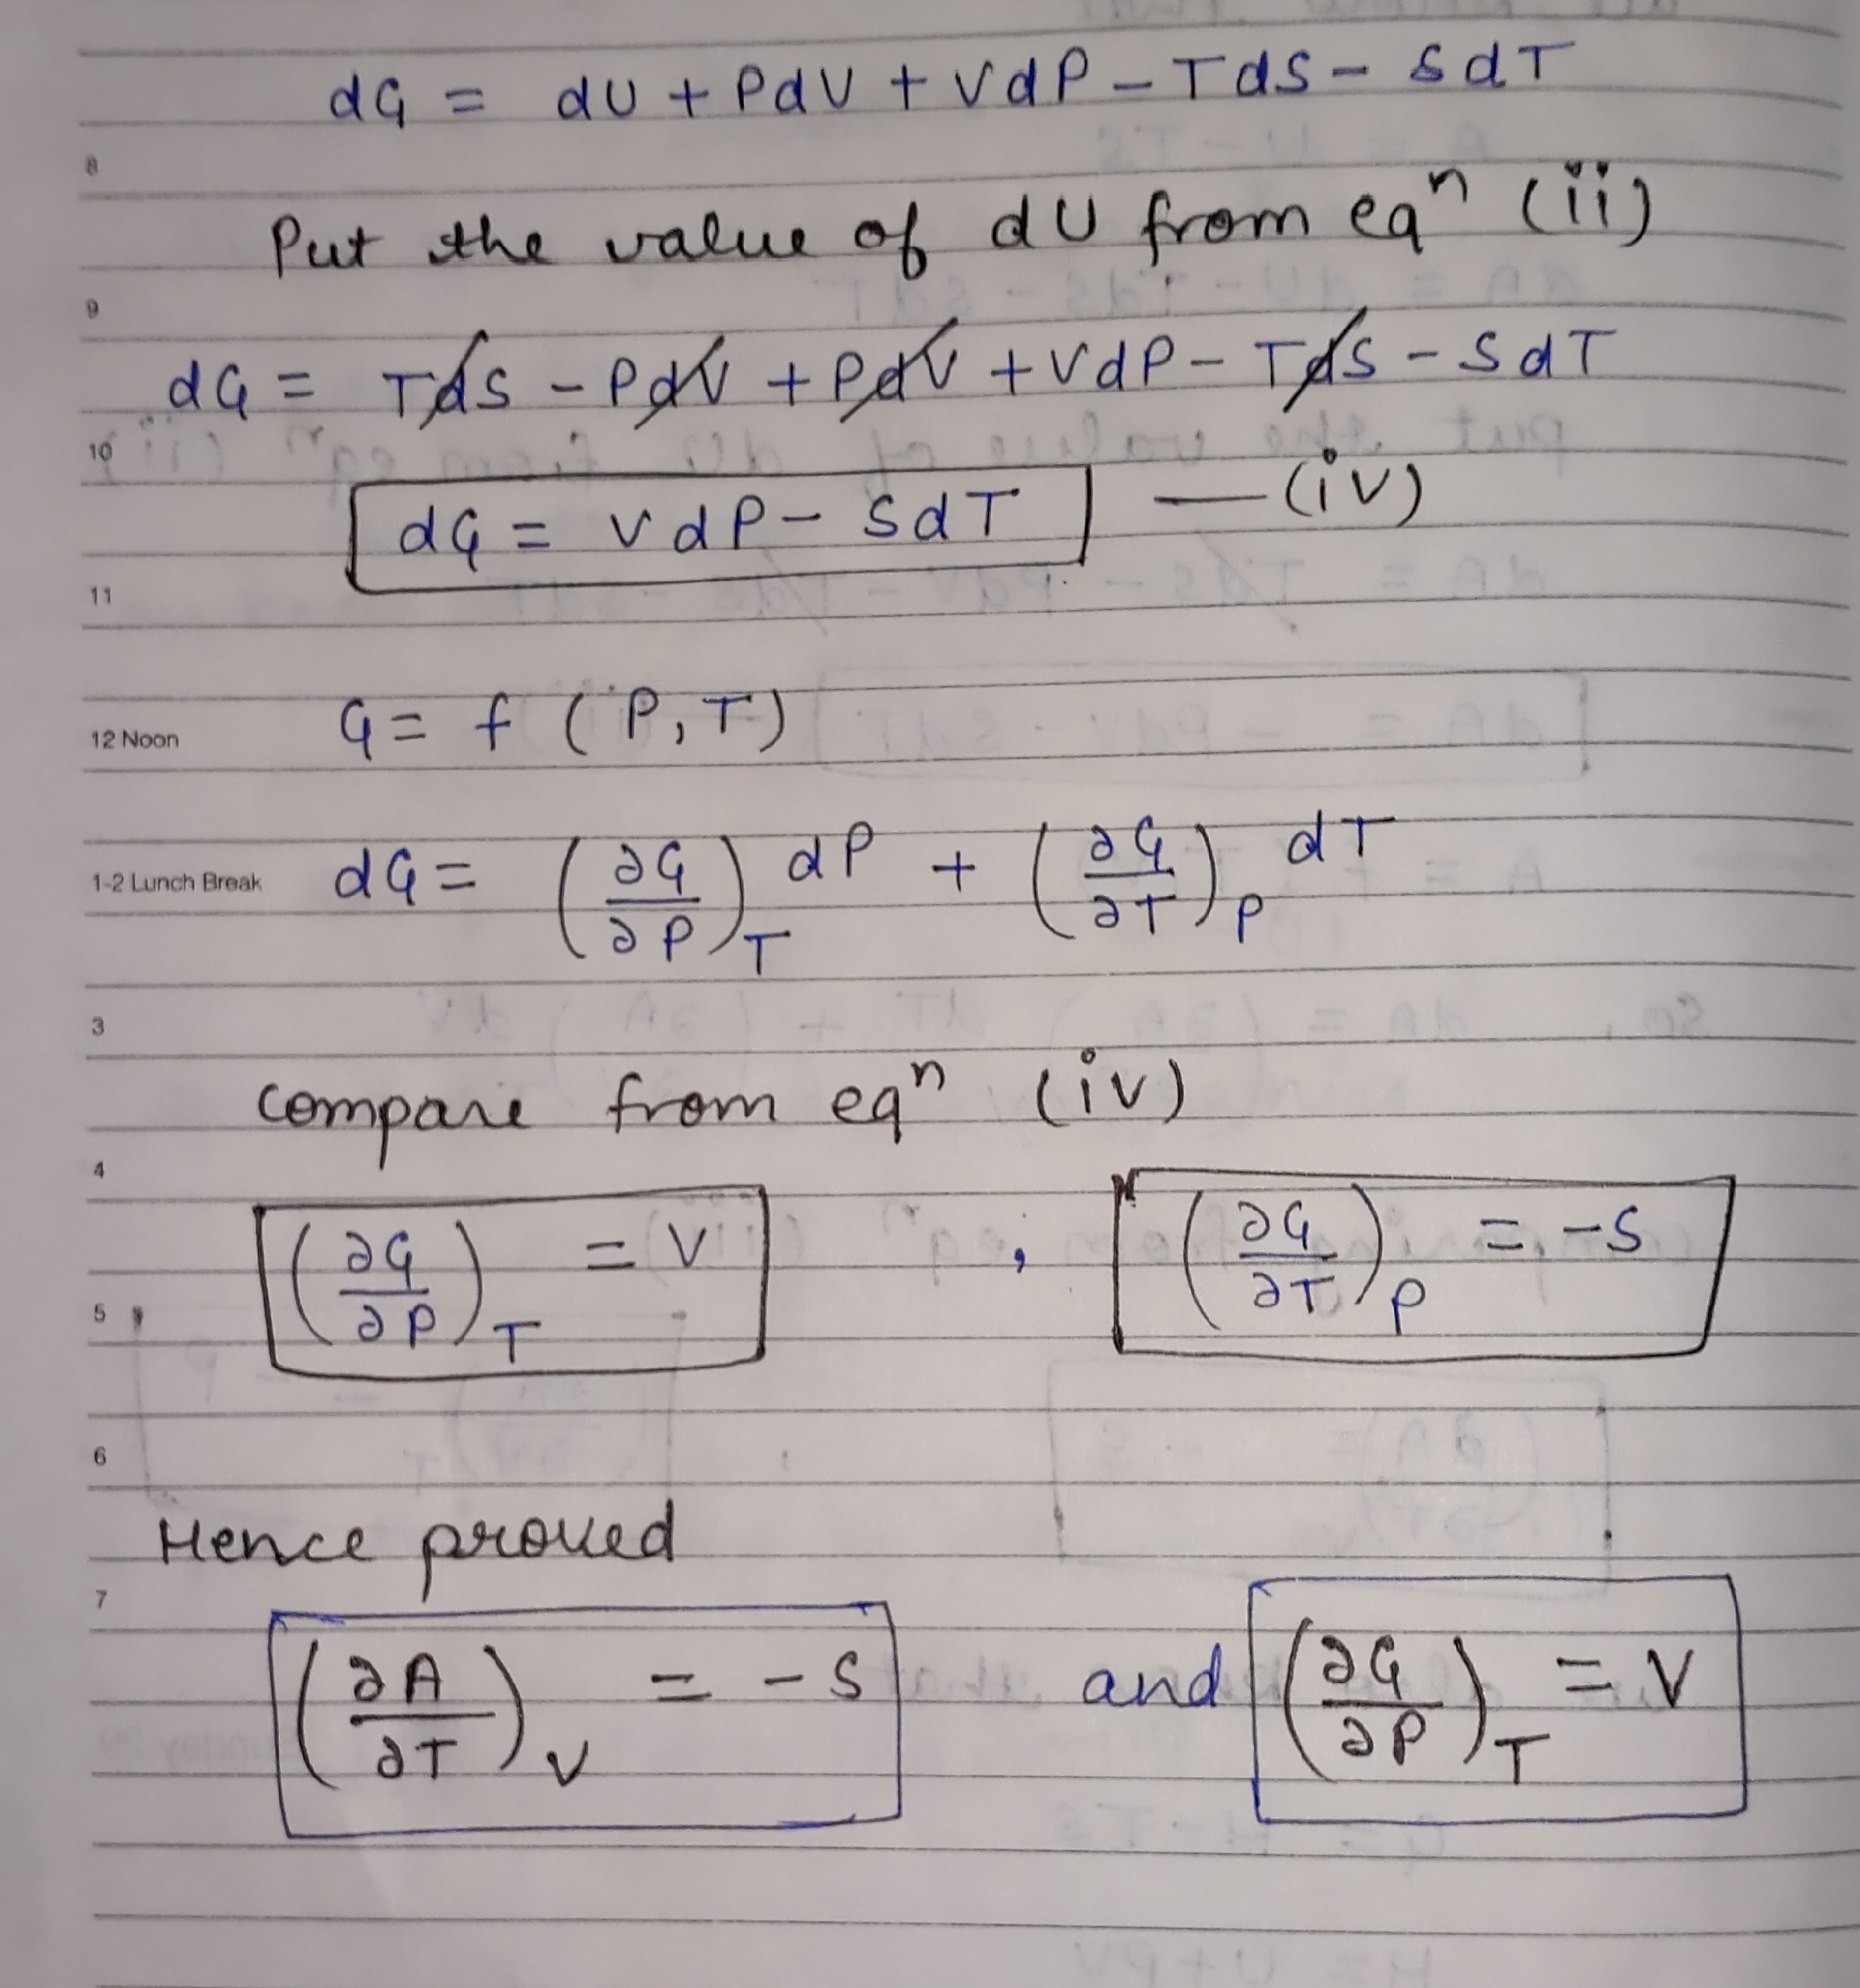 dG = dU + PdV + VdP - TdS - SdT
8
Put the value of dU from eqⁿ (ii)
9
dG = TdS - PdV + PdV + VdP - TdS - SdT
10
dG = VdP - SdT — (iv)
11
12 Noon G = f (P, T)
1-2 Lunch Break dG = (∂G/∂P)_T dP + (∂G/∂T)_P dT
3
Compare from eqⁿ (iv)
4
(∂G/∂P)_T = V , (∂G/∂T)_P = -S
5
6
Hence proved
7
(∂A/∂T)_V = -S and (∂G/∂P)_T = V